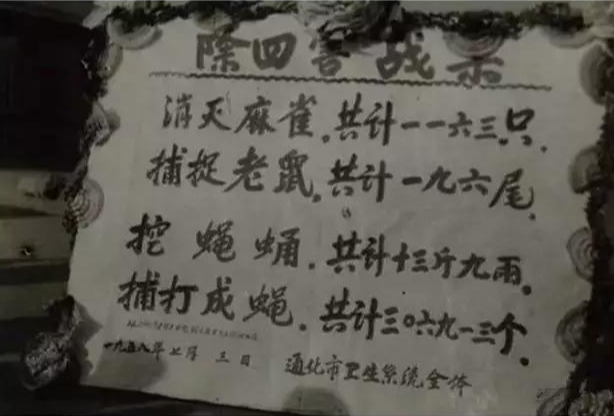 除四害战示
消灭麻雀.共计一一六三只.
捕捉老鼠.共计一九六尾.
挖蝇蛹.共计十三斤九雨.
捕打成蝇.共计三〇六九一三个.
一九五八年七月三日 通化市卫生系统全体